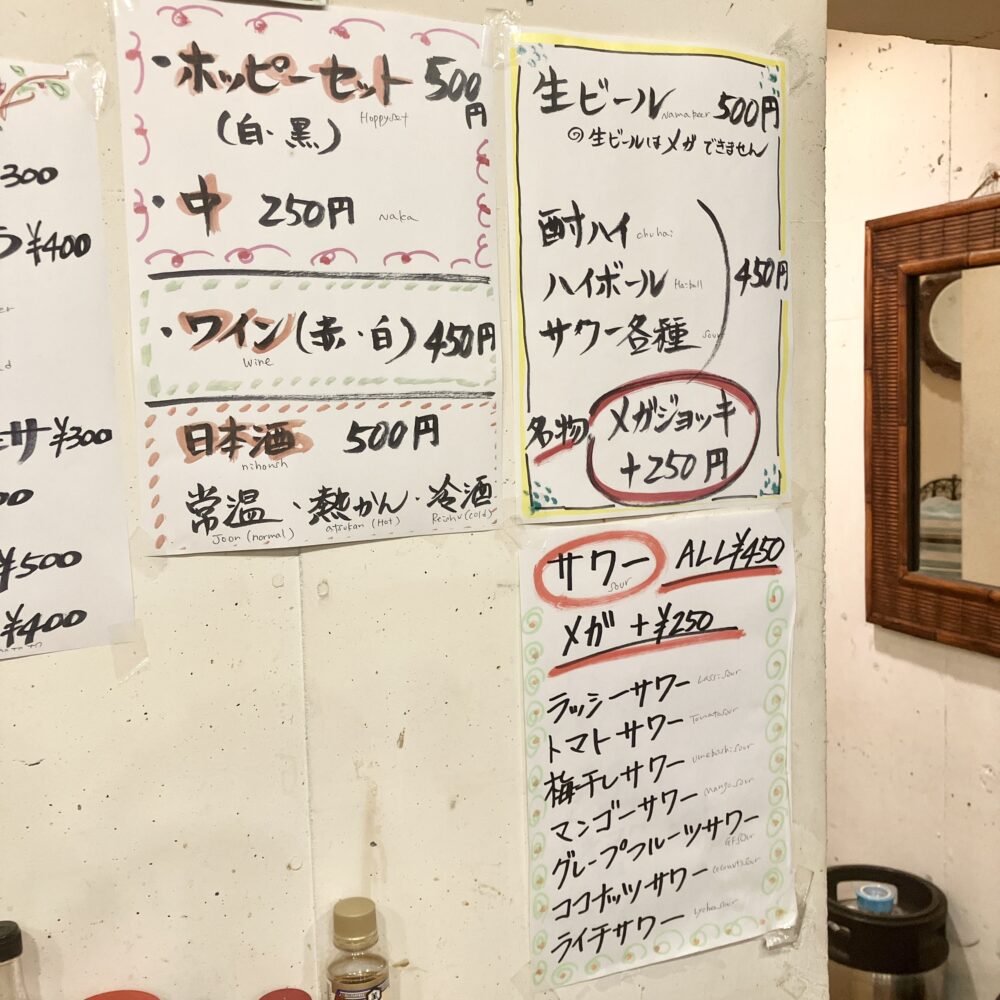 300
¥400
サ ¥300
00
¥500
¥400
・ホッピーセット 500円
Hoppyset
(白・黒)
・中 250円 Naka
・ワイン(赤・白) 450円
Wine
日本酒 500円
nihonsh
常温・熱かん・冷酒
Joon (normal) atsukan (Hot) Reishu (cold)
生ビール Namabeer 500円
◎生ビールはメガできません
酎ハイ chuhai
ハイボール Haiball 450円
サワー各種 sour
名物 メガジョッキ
+250円
サワー ALL¥450
sour
メガ +¥250
ラッシーサワー Lassisour
トマトサワー Tomatosour
梅干しサワー Umeboshisour
マンゴーサワー mangosour
グレープフルーツサワー
GFsour
ココナッツサワー coconutssour
ライチサワー Lycheesour